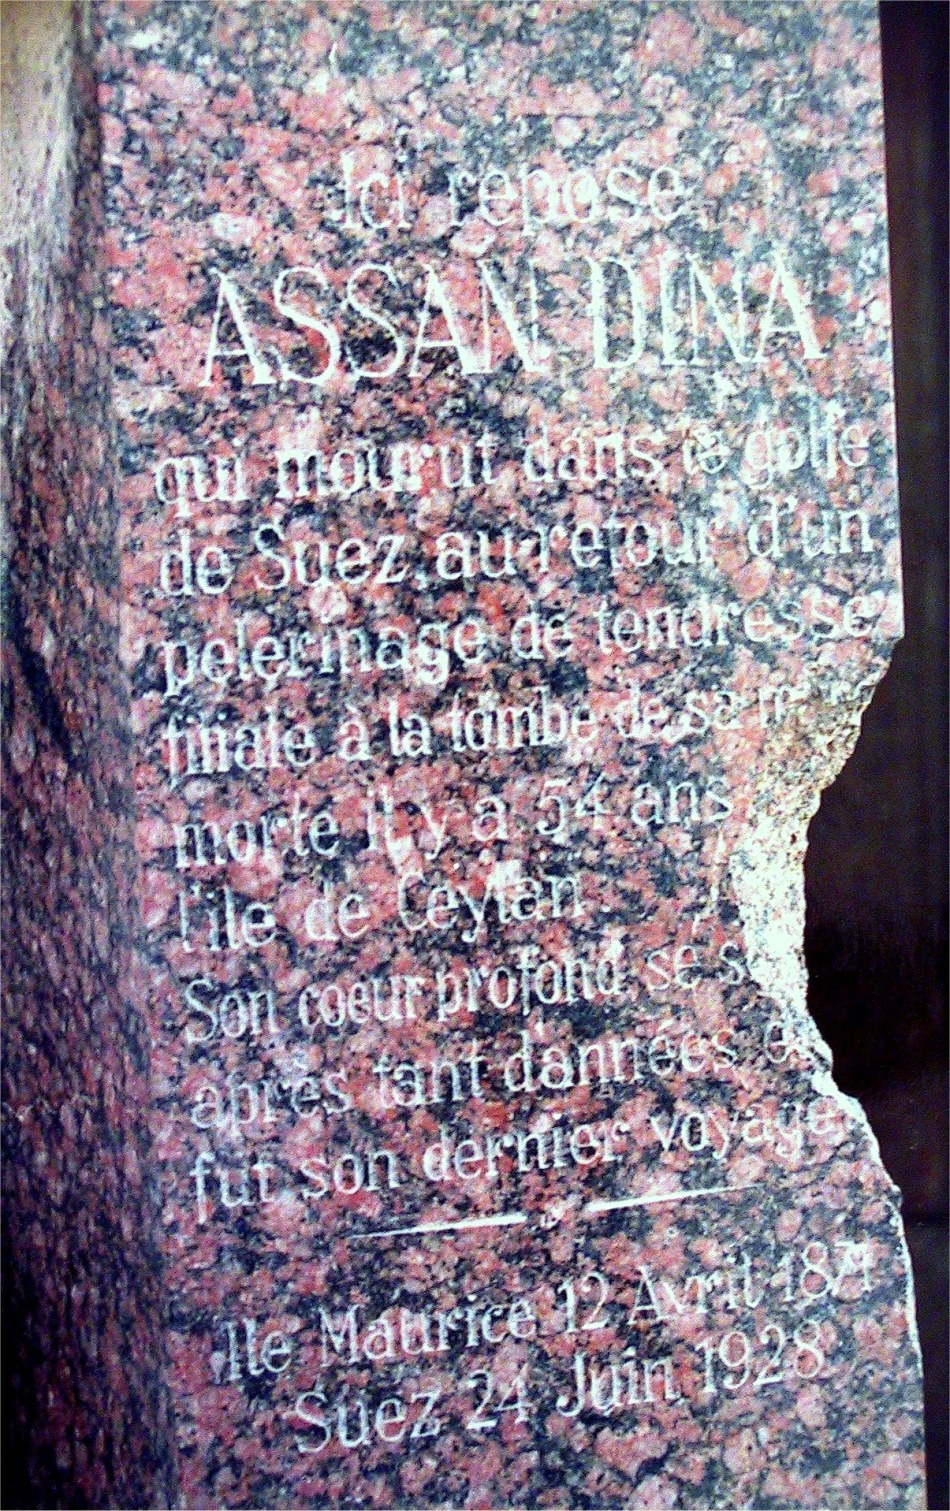 Ici repose
ASSAN DINA
qui mourut dans le golfe
de Suez, au retour d'un
pelerinage de tendresse
filiale à la tombe de sa
morte il y a 54 ans
l'ile de Ceylan.
Son coeur profond
après tant d'années
fut son dernier voyage
Ile Maurice 12 Avril 1871
Suez 24 Juin 1928